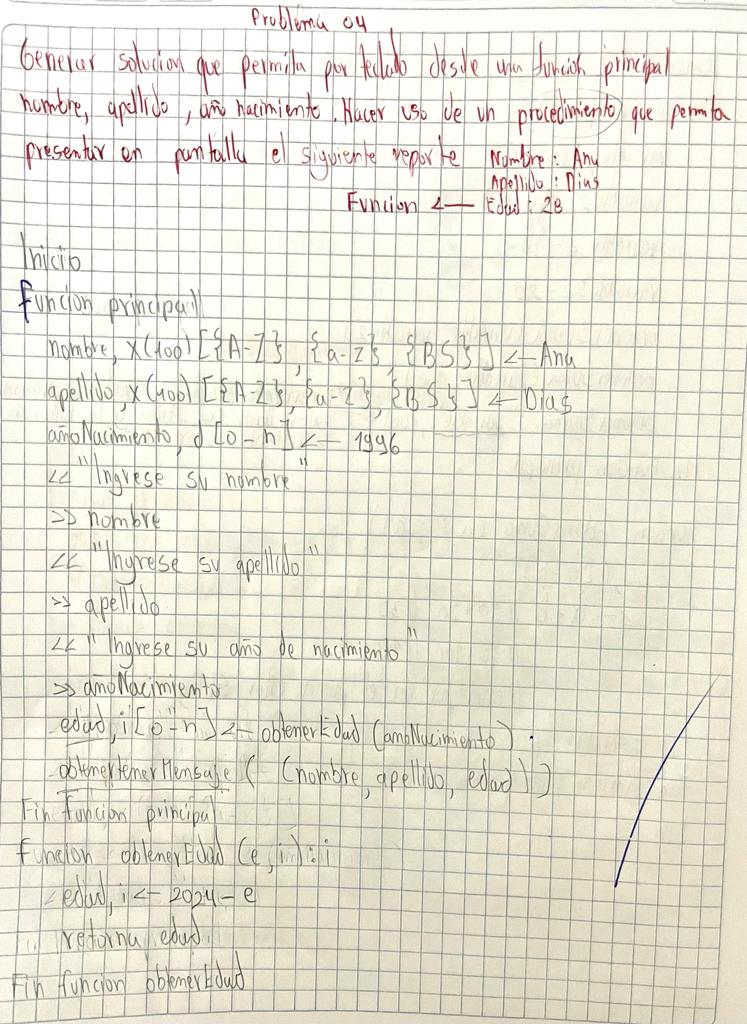 Problema 04
Generar solucion que permita por teclado desde una funcion principal
nombre, apellido, año nacimiento. Hacer uso de un procedimiento que permita
presentar en pantalla el siguiente reporte Nombre: Ana
Apellido: Dias
Funcion <— Edad: 28
Inicio
funcion principal
nombre, X(100) [{A-Z}, {a-z}, {BS}] <- Ana
apellido, X(100) [{A-Z}, {a-z}, {BS}] <- Dias
añoNacimiento, d [0-n] <— 1996
<< "Ingrese su nombre"
>> nombre
<< "Ingrese su apellido"
>> apellido
<< "Ingrese su año de nacimiento"
>> añoNacimiento
edad, i [0-n] <- obtenerEdad (anoNacimiento)
obtenertenerMensaje ( (nombre, apellido, edad))
Fin funcion principal
funcion obtenerEdad (e, i): i
edad, i <- 2024 - e
retorna edad.
Fin funcion obtenerEdad